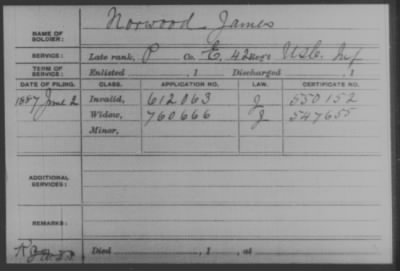 Norwood James
NAME OF SOLDIER:
SERVICE: Late rank, P Co. E, 42 Reg't U.S.C. Inf
TERM OF SERVICE: Enlisted , 1 Discharged , 1
DATE OF FILING. CLASS. APPLICATION NO. LAW. CERTIFICATE NO.
1887 June 2 Invalid, 612063 J 550152
Widow, 760666 J 547655
Minor,
ADDITIONAL SERVICES:
REMARKS:
Died , 1 , at